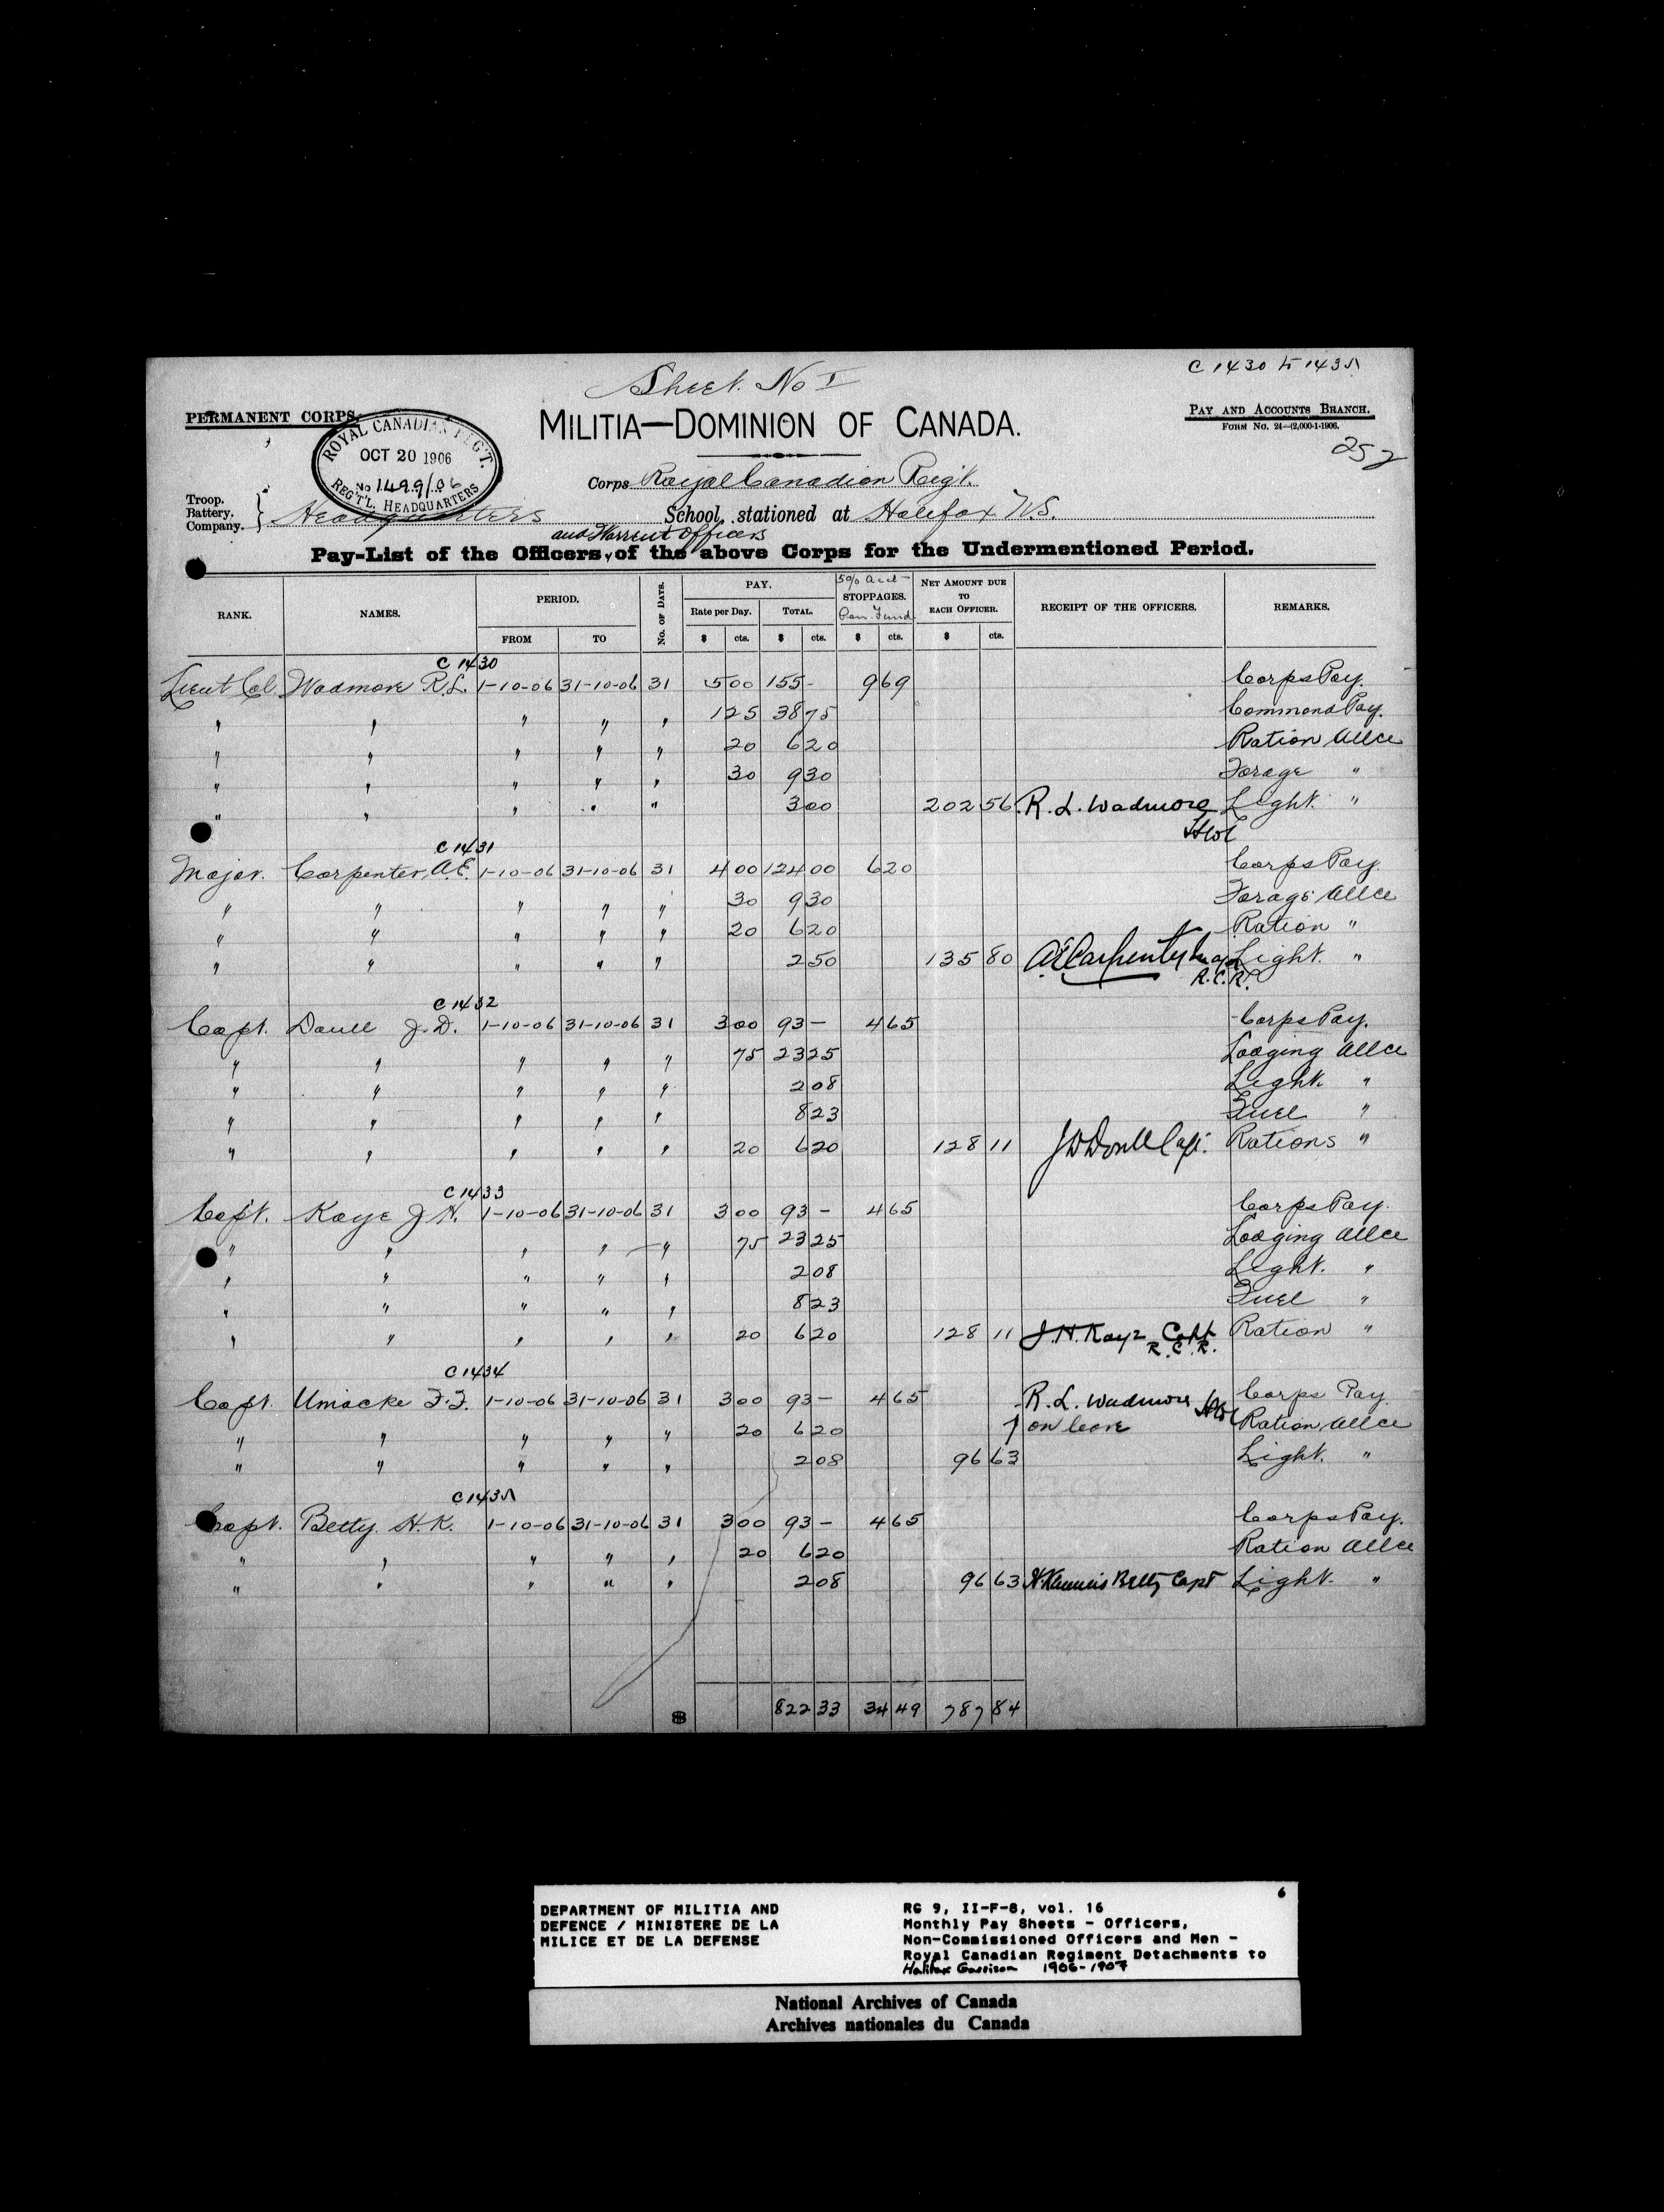 Sheet No I
C 1430 to 1435
PERMANENT CORPS.
MILITIA—DOMINION OF CANADA.
PAY AND ACCOUNTS BRANCH.
FORM NO. 24—12,000-1-1906.
252
ROYAL CANADIAN REG'T.
OCT 20 1906
No 1499/06
REG'T'L. HEADQUARTERS
Corps Royal Canadian Regt.
Troop.
Battery.
Company.
Headquarters School, stationed at Halifax N.S.
and Warrent Officers
Pay-List of the Officers, of the above Corps for the Undermentioned Period.
RANK. NAMES. PERIOD. FROM TO No. of Days. PAY. Rate per Day. TOTAL. $ cts. $ cts. 5% Acct STOPPAGES. Pen. Fund. $ cts. NET AMOUNT DUE TO EACH OFFICER. $ cts. RECEIPT OF THE OFFICERS. REMARKS.
C 1430
Lieut Col Wadmore R.L. 1-10-06 31-10-06 31 5 00 155 - 9 69 Corps Pay.
" " " " " 1 25 38 75 Command Pay.
" " " " " 20 6 20 Ration Allce
" " " " " 30 9 30 Forage "
" " " " " 3 00 202 56 R. L. Wadmore Light "
C 1431
Major. Carpenter, A.E. 1-10-06 31-10-06 31 4 00 124 00 6 20 Corps Pay.
" " " " " 30 9 30 Forage Allce
" " " " " 20 6 20 Ration "
" " " " " 2 50 135 80 A E Carpenter Major Light. "
R.C.R.
C 1432
Capt. Doull J.D. 1-10-06 31-10-06 31 3 00 93 - 4 65 Corps Pay.
" " " " " 75 23 25 Lodging Allce
" " " " " 2 08 Light. "
" " " " " 8 23 Fuel "
" " " " " 20 6 20 128 11 J D Doull Capt. Rations "
C 1433
Capt. Kaye J H. 1-10-06 31-10-06 31 3 00 93 - 4 65 Corps Pay.
" " " " " 75 23 25 Lodging Allce
" " " " " 2 08 Light. "
" " " " " 8 23 Fuel "
" " " " " 20 6 20 128 11 J. H. Kaye Capt Ration "
R.C.R.
C 1434
Capt. Uniacke F.F. 1-10-06 31-10-06 31 3 00 93 - 4 65 R. L. Wadmore Corps Pay
" " " " " 20 6 20 on leave Ration Allce
" " " " " 2 08 96 63 Light. "
C 1435
Capt. Betty H.K. 1-10-06 31-10-06 31 3 00 93 - 4 65 Corps Pay.
" " " " " 20 6 20 Ration Allce
" " " " " 2 08 96 63 Betty Capt Light. "
822 33 34 49 787 84
6
DEPARTMENT OF MILITIA AND
DEFENCE / MINISTERE DE LA
MILICE ET DE LA DEFENSE
RG 9, II-F-8, vol. 16
Monthly Pay Sheets - Officers,
Non-Commissioned Officers and Men -
Royal Canadian Regiment Detachments to
Halifax Garrison 1906-1907
National Archives of Canada
Archives nationales du Canada